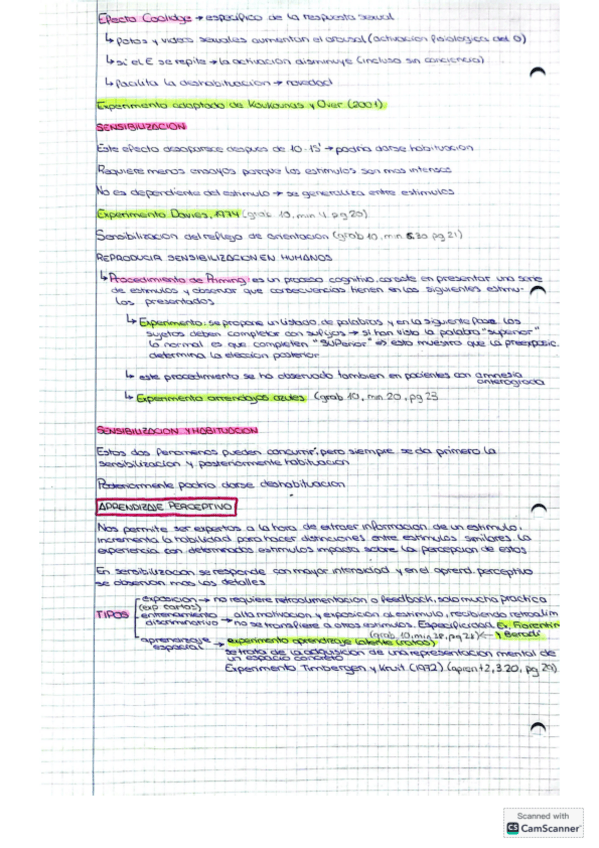 Efecto Coolidge → específico de la respuesta sexual
↳ Fotos y videos sexuales aumentan el arousal (activación fisiológica del O)
↳ si el E se repite → la activación disminuye (incluso sin conciencia)
↳ Facilita la deshabituación → novedad
Experimento adaptado de Koukounas y Over (2001)
SENSIBILIZACION
Este efecto desaparece después de 10-15' → podría darse habituación
Requiere menos ensayos porque los estímulos son más intensos
No es dependiente del estímulo → se generaliza entre estímulos
Experimento Davies, 1974 (grab 10, min 4, pg 20)
Sensibilización del reflejo de orientación (grab 10, min 5.20 pg 21)
REPRODUCIR SENSIBILIZACION EN HUMANOS
↳ Procedimiento de Priming: es un proceso cognitivo, consiste en presentar una serie
de estímulos y observar que consecuencias tienen en los siguientes estímu-
los presentados
↳ Experimento: se propone un listado de palabras y en la siguiente fase los
sujetos deben completar con sufijos → si han visto la palabra "superior"
lo normal es que completen "SUPerior" => esto muestra que la preexposic.
determina la elección posterior
↳ este procedimiento se ha observado también en pacientes con amnesia
anterograda
↳ Experimento arrendajos azules (grab 10, min 20, pg 23
SENSIBILIZACION Y HABITUACION
Estos dos fenómenos pueden concurrir, pero siempre se da primero la
sensibilización y posteriormente habituación
Posteriormente podría darse deshabituación
APRENDIZAJE PERCEPTIVO
Nos permite ser expertos a la hora de extraer información de un estímulo.
Incrementa la habilidad para hacer distinciones entre estímulos similares. La
experiencia con determinados estímulos impacta sobre la percepción de estos
En sensibilización se responde con mayor intensidad y en el aprend. perceptivo
se observan más los detalles
TIPOS
exposición → no requiere retroalimentación o feedback, solo mucha práctica
(exp cartos)
entrenamiento → alta motivación y exposición al estímulo, recibiendo retroalim
discriminativo → no se transfiere a otros estímulos. Especificidad. Ex. Fiorentin
(grab, 10, min 28, pg 28) ← y Berardi
aprendizaje → experimento aprendizaje latente (ratas)
espacial
se trata de la adquisición de una representación mental de
un espacio concreto
Experimento Timbergen y Kruit (1972) (apren t2, 3.20, pg 29)
Scanned with
CS CamScanner